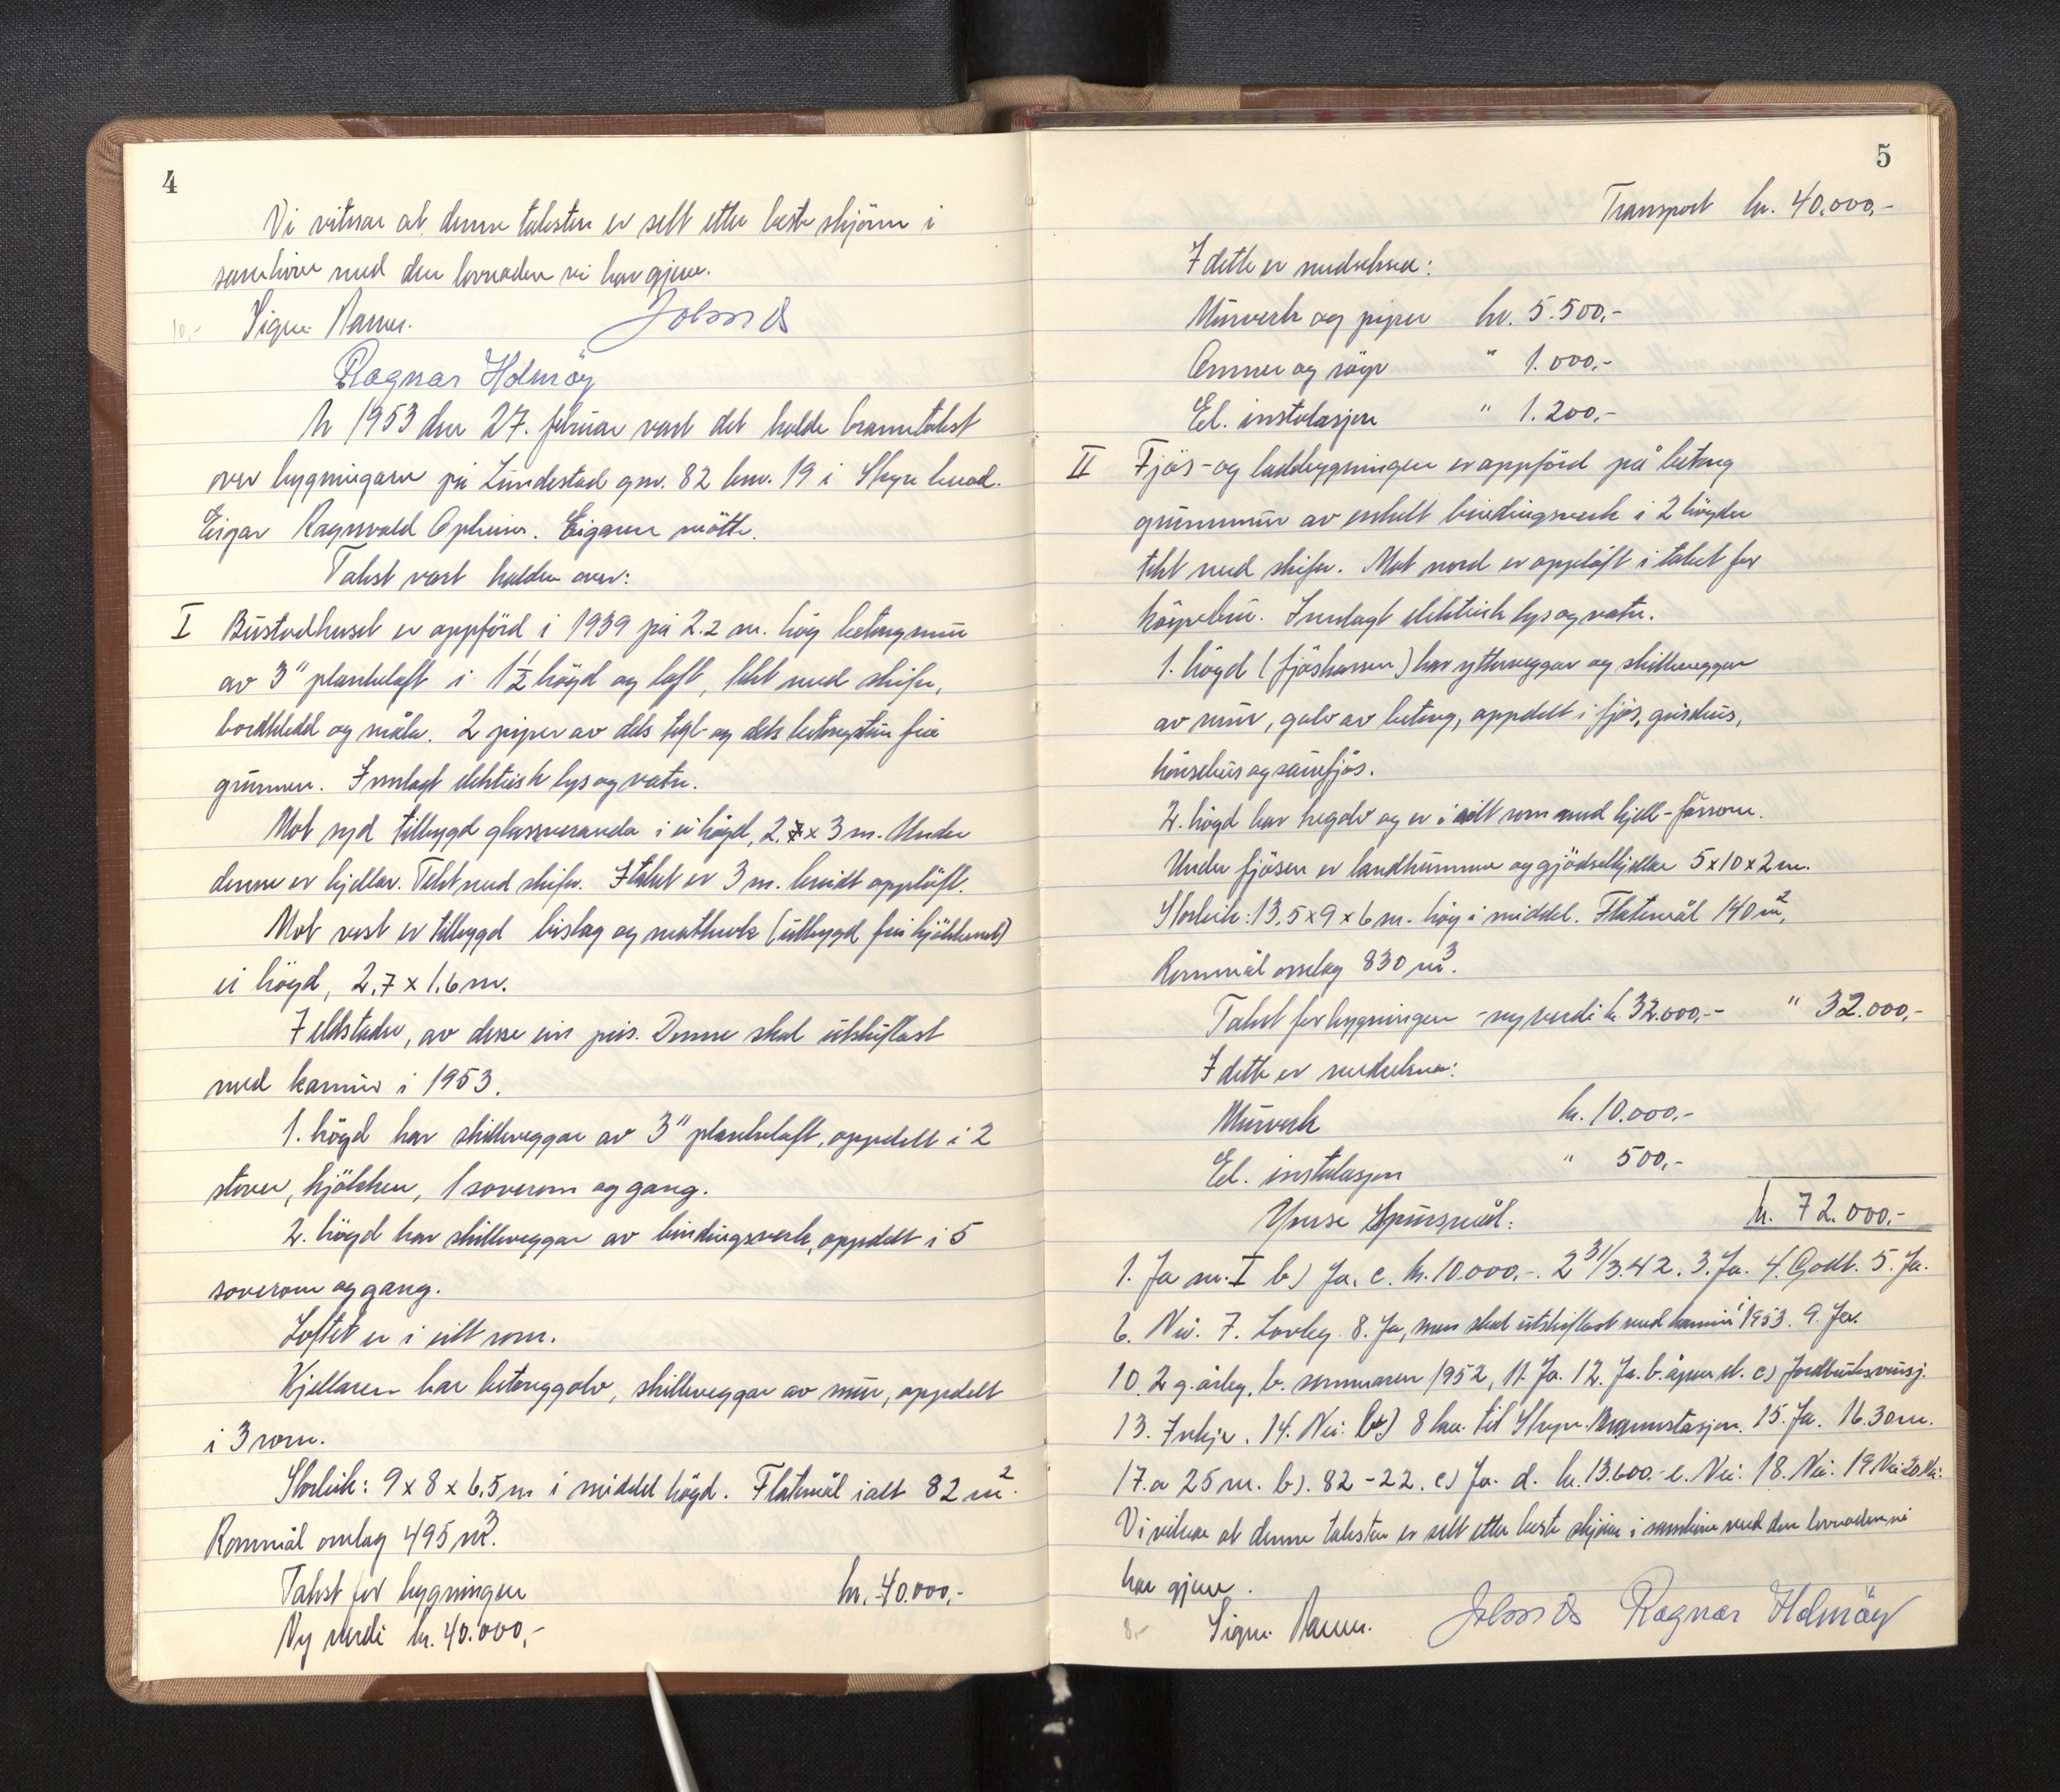 4
Vi vitnar at denne taksten er sett etter beste skjönn i
samhöve med den lovnaden vi har gjeve.
10,-
Ragnar Holmöy
År 1953 den 27. februar vart det halde branntakst
over bygningane på Lundestad gnr. 82 bnr. 19 i Stryn herad.
Eigar Ragnvald Opheim. Eigaren mötte.
Takst vart halden over:
I Bustadhuset er oppförd i 1939 på 2.2 m. hög betongmur
av 3" plankelaft i 1½ högd og loft, tekt med skifer,
bordkledd og måla. 2 piper av dels tegl- og dels betongstein frå
grunnen. Innlagt elektrisk lys og vatn.
Mot syd tilbygd glassveranda i ei högd, 2.7 x 3 m. Under
denne er kjellar. Tekt med skifer. I taket er 3 m. breidt opplöft.
Mot vest er tilbygd bislag og matbude (utbygd frå kjökkenet)
ei högd, 2,7 x 1,6 m.
7 eldstader, av desse ein peis. Denne skal utskiftast
med kamin i 1953.
1. högd har skilleveggar av 3" plankelaft, oppdelt i 2
stover, kjökken, 1 soverom og gang.
2. högd har skilleveggar av bindingsverk, oppdelt i 5
soverom og gang.
Loftet er i eitt rom.
Kjellaren har betonggolv, skilleveggar av mur, oppdelt
i 3 rom.
Storleik: 9 x 8 x 6,5 m i middel högd. Flatemål ialt 82 m².
Rommål omlag 495 m³.
Takst for bygningen kr. 40.000,-
Ny verdi kr. 40.000,-
5
Transport kr. 40.000,-
I dette er medrekna:
Murverk og piper kr. 5.500,-
Omner og röyr " 1.000,-
El. instalasjon " 1.200,-
II Fjös- og ladebygningen er oppförd på betong
grunnmur av enkelt bindingsverk i 2 högder
tekt med skifer. Mot nord er opplöft i taket for
köyrebru. Innlagt elektrisk lys og vatn.
1. högd (fjöshasen) har ytterveggar og skilleveggar
av mur, golv av betong, oppdelt i fjös, grisehus,
hönsehus og sauefjös.
2. högd har tregolv og er i eitt rom med hjell-
Under fjösen er landkummar og gjödselkjellar 5 x 10 x 2 m.
Storleik: 13,5 x 9 x 6 m. hög i middel. Flatemål 140 m².
Rommål omlag 830 m³.
Takst for bygningen - ny verdi kr. 32.000,- " 32.000,-
I dette er medrekna:
Murverk kr. 10.000,-
El. instalasjon " 500,-
kr. 72.000,-
Ymse Spursmål:
1. Ja nr. I b) Ja. c. kr. 10.000,-. 2 31/3.42. 3. Ja. 4. Godt. 5. Ja.
6. Nei. 7. Lovleg. 8. Ja, men skal utskiftast med kamin i 1953. 9. Ja.
10. 2 g. årleg. b. sommaren 1952, 11. Ja. 12. Ja. b. åpen d. c) Jordbruksvoisj.
13. Inkje. 14. Nei. b) 8 km. til Stryn brannstasjon. 15. Ja. 16. 30 m.
17. a 25 m. b). 82 - 22. c) Ja. d. kr. 13.600.- e. Nei. 18. Nei. 19. Nei 20 Nei.
Vi vitnar at denne taksten er sett etter beste skjönn i samhöve med den lovnaden vi
har gjeve.
8.-
Ragnar Holmöy